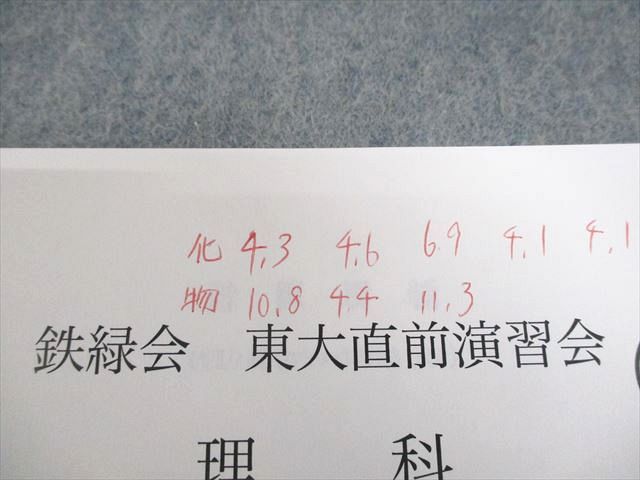 化 4.3 4.6 6.9 4.1 4.1
物 10.8 4.4 11.3
鉄緑会 東大直前演習会
理 科